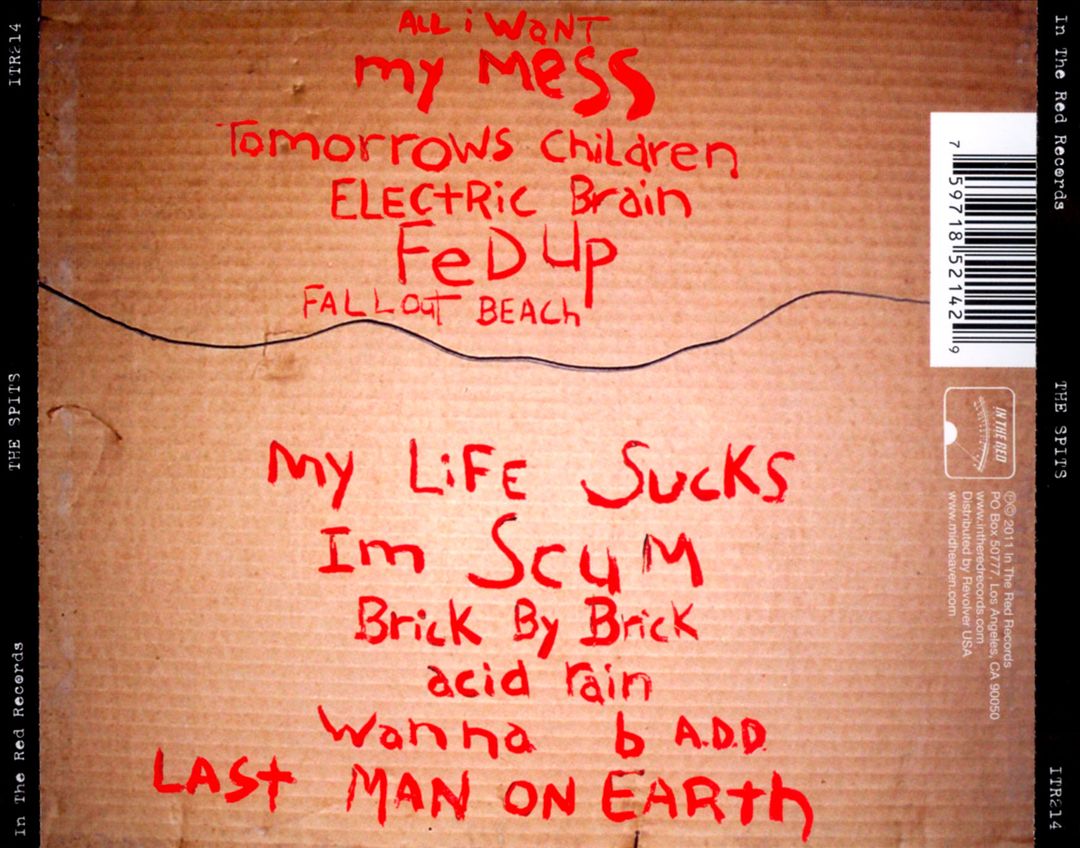 ALL i WaNT
my Mess
Tomorrows Children
ELECtRic Brain
FeD Up
FALLOut BEACh
My LiFE SucKS
Im ScuM
BricK By BricK
acid rain
Wanna b A.D.D.
LASt MAN ON EARth
ITR214
THE SPITS
In The Red Records
In The Red Records
THE SPITS
ITR214
7 59718 52142 9
IN THE RED
℗© 2011 In The Red Records
PO Box 50777, Los Angeles, CA 90050
www.intheredrecords.com
Distributed by Revolver USA
www.midheaven.com